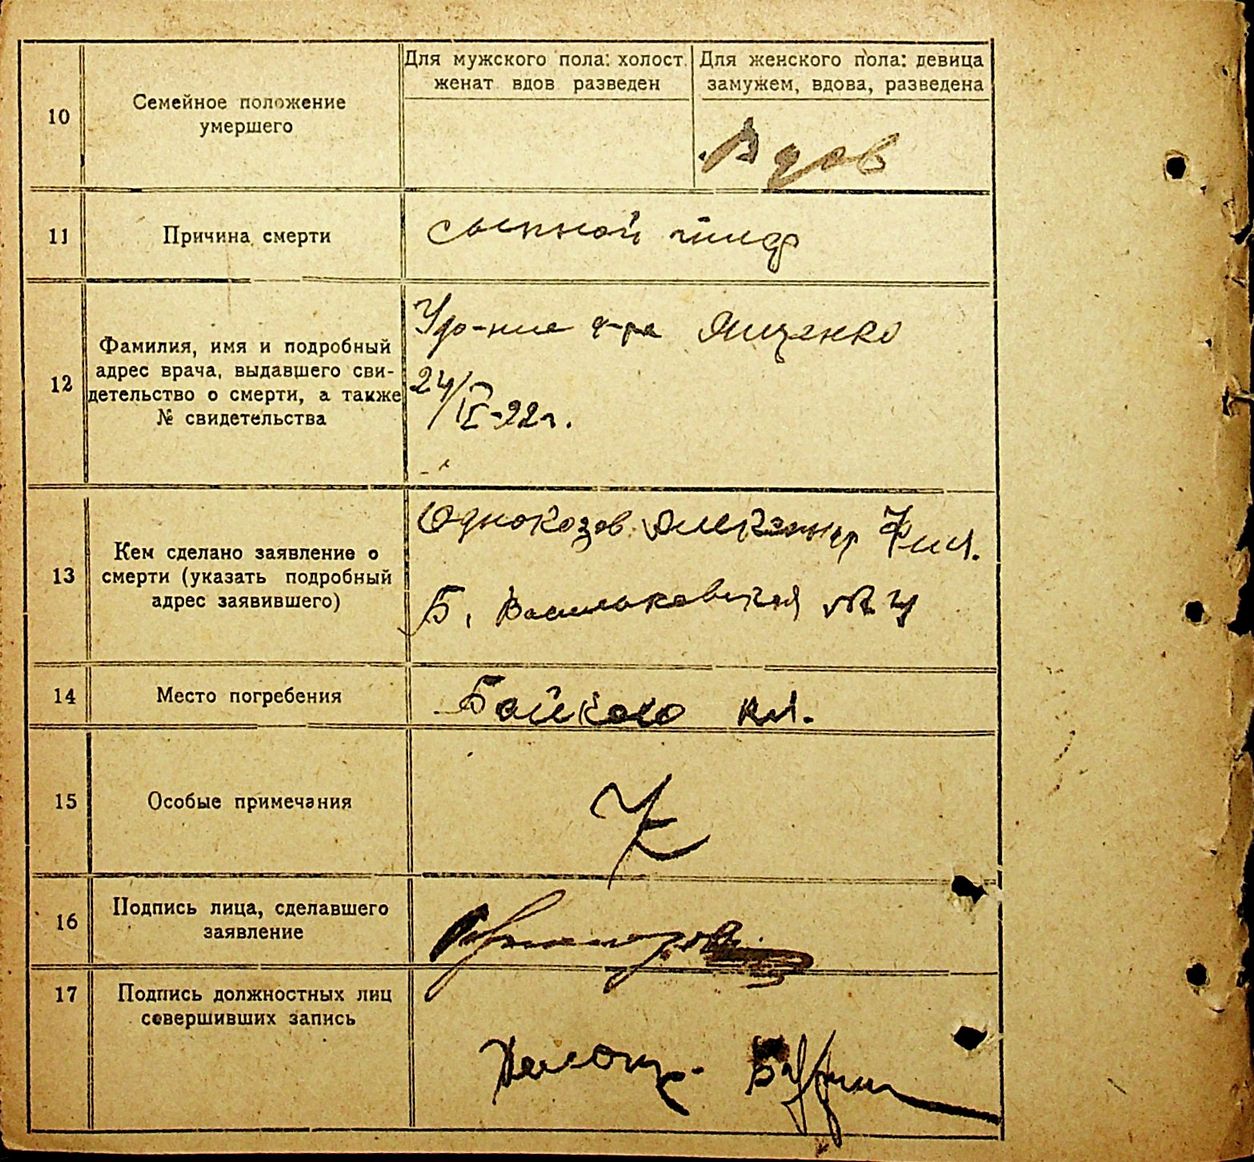 10
Семейное положение
умершего
Для мужского пола: холост
женат вдов разведен
Для женского пола: девица
замужем, вдова, разведена
Вдов
11
Причина смерти
сыпной тиф
12
Фамилия, имя и подробный
адрес врача, выдавшего сви-
детельство о смерти, а также
№ свидетельства
Удо-ние д-ра Ященко
24/IV-22г.
13
Кем сделано заявление о
смерти (указать подробный
адрес заявившего)
Однокозов Александр Фил.
Б. Васильковская №
14
Место погребения
Байково кл.
15
Особые примечания
16
Подпись лица, сделавшего
заявление
17
Подпись должностных лиц
совершивших запись